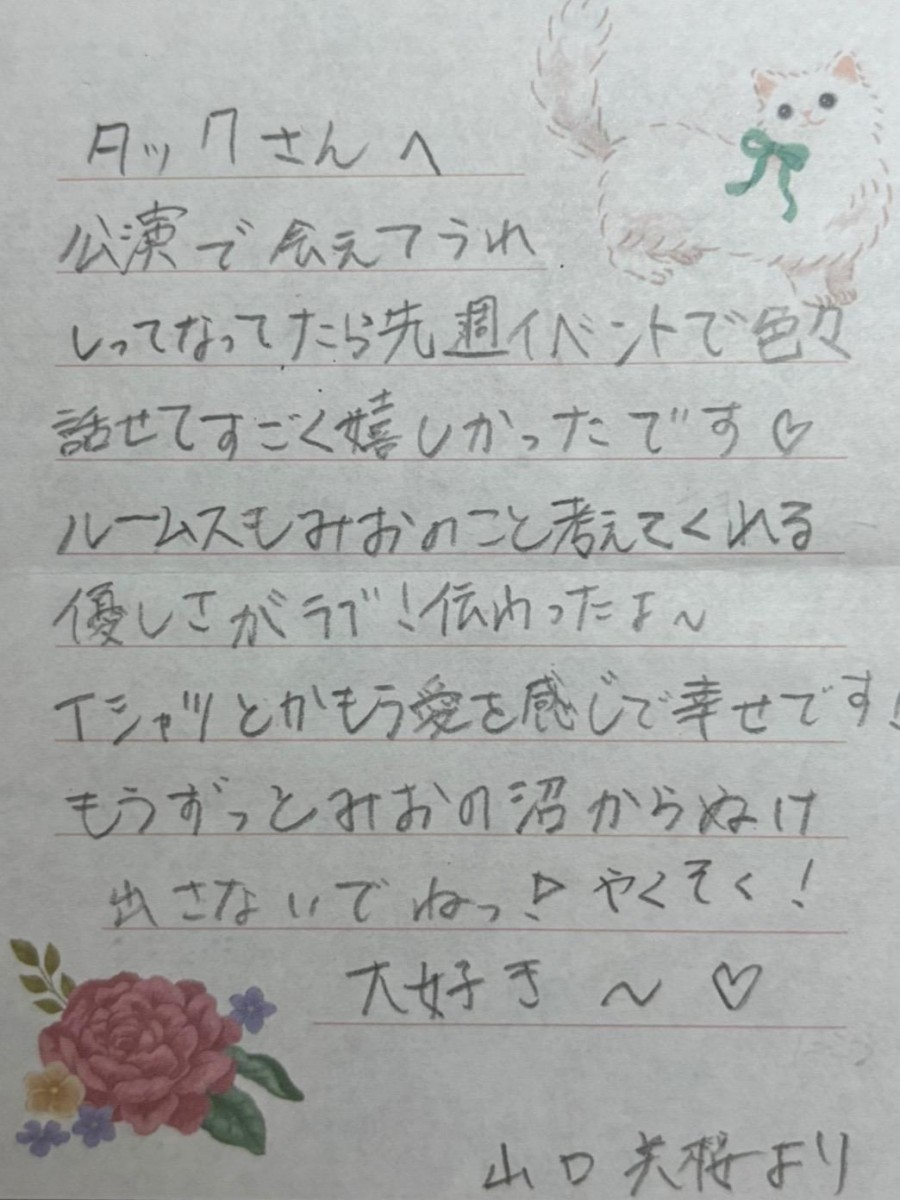 タックさんへ
公演で会えてうれ
しってなってたら先週イベントで色々
話せてすごく嬉しかったです♡
ルームスもみおのこと考えてくれる
優しさがラブ!伝わったよ〜
Tシャツとかもう愛を感じで幸せです!
もうずっとみおの沼からぬけ
出さないでねっ! やくそく!
大好き〜♡
山口美桜より